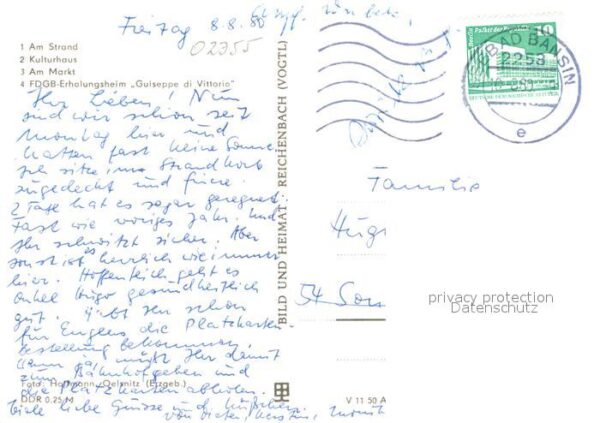 Freitag 8.8.80
02355
1 Am Strand
2 Kulturhaus
3 Am Markt
4 FDGB-Erholungsheim „Guiseppe di Vittorio"
Ihr Lieben! Nun
sind wir schon seit
Montag hier und
hatten fast keine Sonne
ich sitze im Strandkorb
zugedeckt und friere.
2 Tage hat es sogar geregnet.
Fast wie voriges Jahr. Und
Ihr schwitzt sicher. Aber
sonst ist es herrlich wie immer
hier. Hoffentlich geht es
Onkel Hugo gesundheitlich
gut. Habt Ihr schon
für die Platzkarten
bestellung bekommen,
wenn ja müßt Ihr damit
zum Bahnhof gehen und
die Platzkarten abholen.
Foto: Hoffmann, Oelsnitz (Erzgeb.)
DDR 0,25 M
Viele liebe Grüsse und Küßchen
von
BILD UND HEIMAT REICHENBACH (VOGTL)
V 11 50 A
10
Berlin Palast der Republik
BAD BANSIN
2253
e
Familie
Hugo
54 Son
privacy protection
Datenschutz